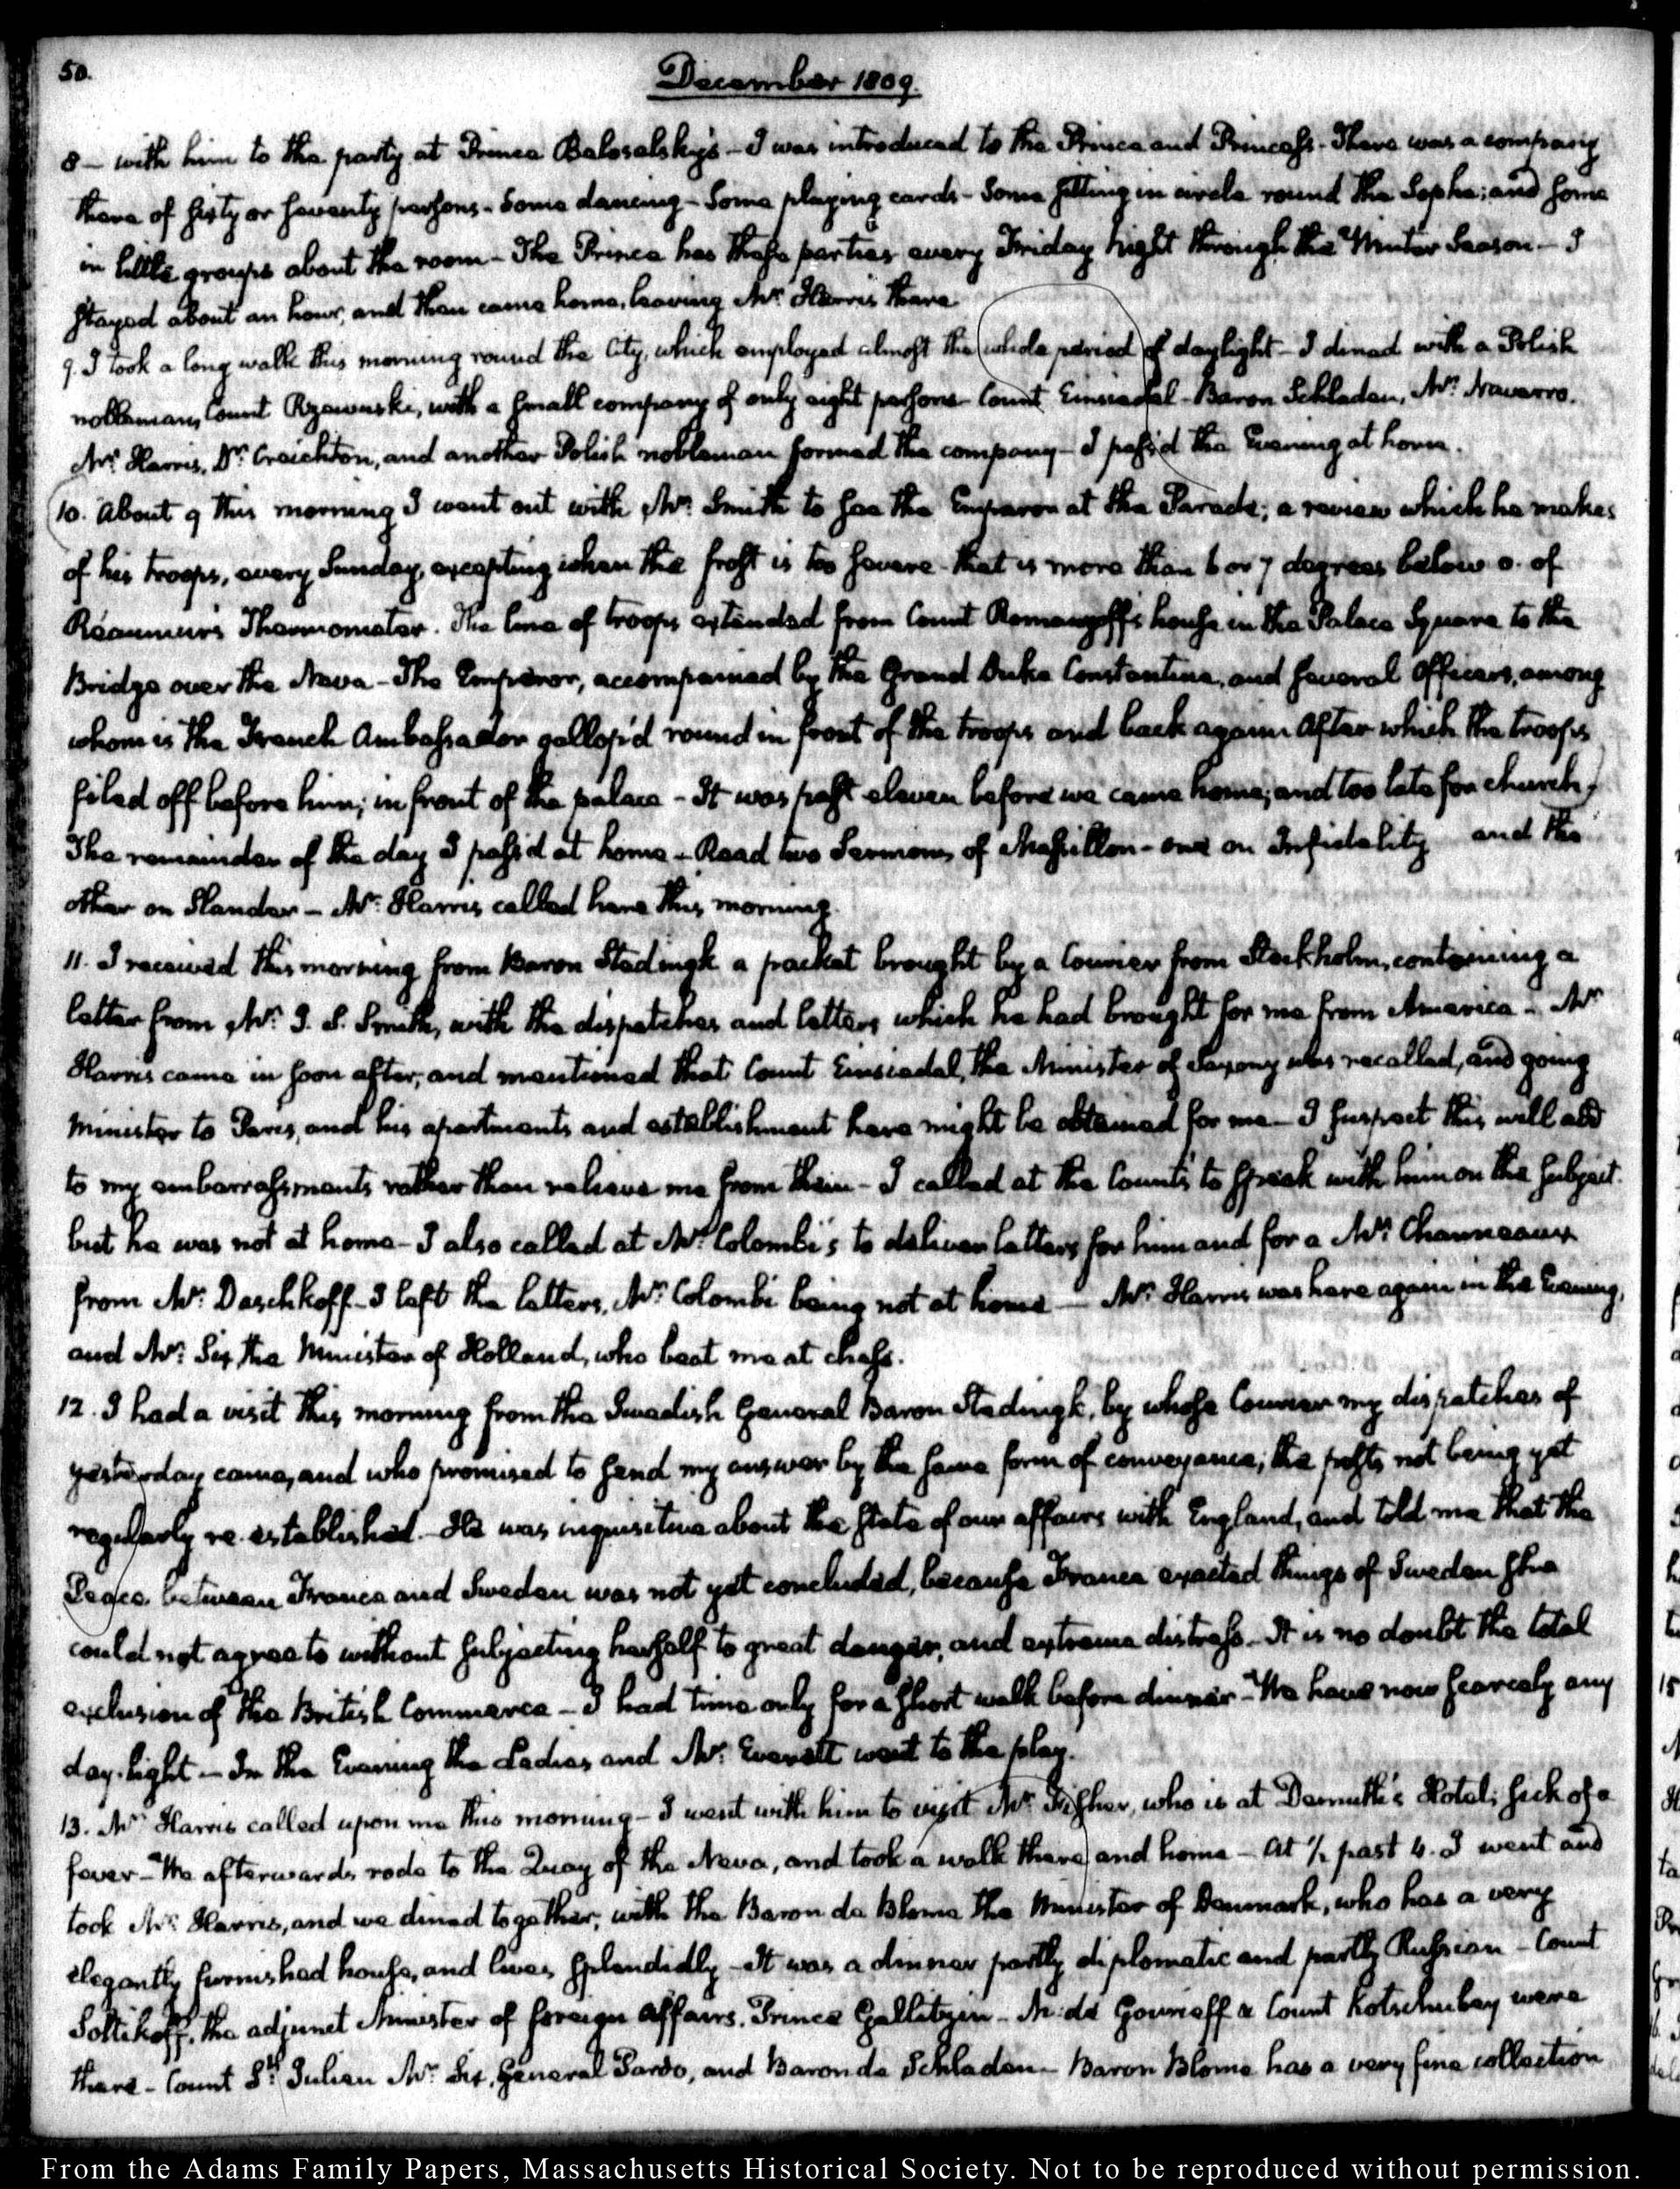 50.
December 1809.
8 – with him to the party at Prince Baloselsky's – I was introduced to the Prince and Princess – There was a company
there of sixty or seventy persons – Some dancing – Some playing cards – Some sitting in circle round the Sopha; and some
in little groups about the room – The Prince has these parties every Friday Night through the Winter Season – I
stayed about an hour, and then came home, leaving Mr. Harris there
9. I took a long walk this morning round the City, which employed almost the whole period of daylight – I dined with a Polish
nobleman, Count Rzewuski, with a small company of only eight persons – Count Einsiedel – Baron Schladen, Mr. Navarro.
Mr. Harris, Dr. Creichton, and another Polish nobleman formed the company – I pass'd the Evening at home.
10. About 9 this morning I went out with Mr. Smith to see the Emperor at the Parade; a review which he makes
of his troops, every Sunday, excepting when the frost is too severe – that is more than 6 or 7 degrees below 0. of
Réaumur's Thermometer. The line of troops extended from Count Romanzoff's house in the Palace Square to the
Bridge over the Neva – The Emperor, accompanied by the Grand Duke Constantine, and several Officers, among
whom is the French Ambassador gallop'd round in front of the troops and back again After which the troops
filed off before him; in front of the palace – It was past eleven before we came home; and too late for church.
The remainder of the day I pass'd at home – Read two Sermons of Massillon – one on Infidelity and the
other on Slander – Mr. Harris called here this morning.
11. I received this morning from Baron Stedingk a packet brought by a Courier from Stockholm, containing a
letter from Mr. J. S. Smith, with the dispatches and letters which he had brought for me from America – Mr
Harris came in soon after, and mentioned that Count Einsiedel, the Minister of Saxony was recalled, and going
Minister to Paris, and his apartments and establishment here might be obtained for me – I suspect this will add
to my embarrassments rather than relieve me from them – I called at the Count's to speak with him on the subject.
but he was not at home – I also called at Mr. Colombi's to deliver letters for him and for a Mr. Channeaux
from Mr. Daschkoff – I left the letters, Mr. Colombi being not at home – Mr. Harris was here again in the Evening,
and Mr. Six, the Minister of Holland, who beat me at chess.
12. I had a visit this morning from the Swedish General Baron Stedingk, by whose Courier my dispatches of
yesterday came, and who promised to send my answer by the same form of conveyance; the posts not being yet
regularly re-established. He was inquisitive about the state of our affairs with England, and told me that the
Peace between France and Sweden was not yet concluded, because France exacted things of Sweden she
could not agree to without subjecting herself to great danger, and extreme distress – It is no doubt the total
exclusion of the British Commerce – I had time only for a short walk before dinner – We have now scarcely any
day-light – In the Evening the Ladies and Mr. Everett went to the play.
13. Mr. Harris called upon me this morning – I went with him to visit Mr. Fisher, who is at Demuth's Hotel; sick of a
fever – We afterwards rode to the Quay of the Neva, and took a walk there and home – At ½ past 4. I went and
took Mr. Harris, and we dined together, with the Baron de Blome the Minister of Denmark, who has a very
elegantly furnished house, and lives splendidly – It was a dinner partly diplomatic and partly Russian – Count
Soltikoff, the adjunct Minister of foreign Affairs. Prince Gallitzin – M: de Gourieff & Count Kotschubey were
there – Count St. Julien Mr. Six, General Pardo, and Baron de Schladen – Baron Blome has a very fine collection
From the Adams Family Papers, Massachusetts Historical Society. Not to be reproduced without permission.